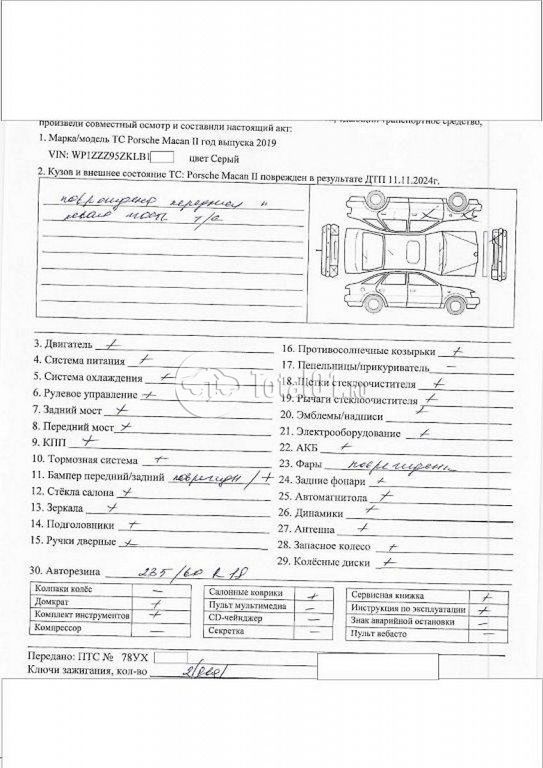 произвели совместный осмотр и составили настоящий акт: транспортное средство,
1. Марка/модель ТС Porsche Macan II год выпуска 2019
VIN: WP1ZZZ95ZKLB1 цвет Серый
2. Кузов и внешнее состояние ТС: Porsche Macan II поврежден в результате ДТП 11.11.2024г.
повреждена передняя и
левая т/с
3. Двигатель +
4. Система питания +
5. Система охлаждения +
6. Рулевое управление +
7. Задний мост +
8. Передний мост +
9. КПП +
10. Тормозная система +
11. Бампер передний/задний поврежден / +
12. Стёкла салона +
13. Зеркала +
14. Подголовники +
15. Ручки дверные +
16. Противосолнечные козырьки +
17. Пепельницы/прикуриватель —
18. Щетки стеклоочистителя +
19. Рычаги стеклоочистителя +
20. Эмблемы/надписи +
21. Электрооборудование +
22. АКБ +
23. Фары повреждены
24. Задние фонари +
25. Автомагнитола +
26. Динамики +
27. Антенна +
28. Запасное колесо +
29. Колёсные диски +
Total01.ru
30. Авторезина 235/60 R 18
Колпаки колёс —
Домкрат +
Комплект инструментов +
Компрессор —
Салонные коврики +
Пульт мультимедиа —
CD-чейнджер —
Секретка —
Сервисная книжка +
Инструкция по эксплуатации +
Знак аварийной остановки —
Пульт вебасто —
Передано: ПТС № 78УХ
Ключи зажигания, кол-во 2/два/